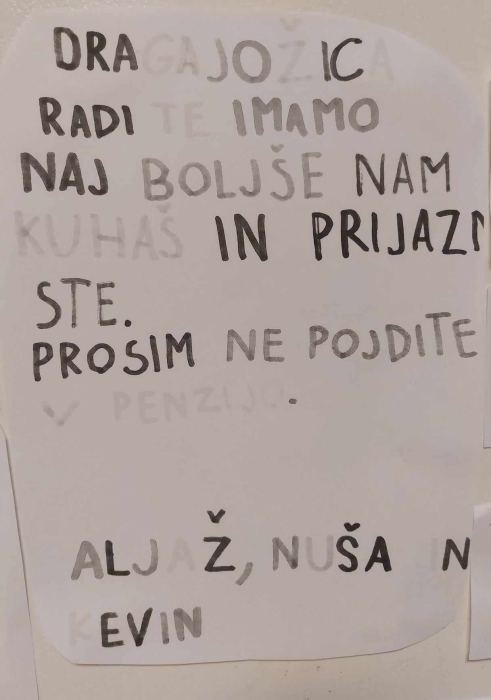 DRAGA JOŽICA
RADI TE IMAMO
NAJ BOLJŠE NAM
KUHAŠ IN PRIJAZN
STE.
PROSIM NE POJDITE
V PENZIJO.
ALJAŽ, NUŠA IN
KEVIN